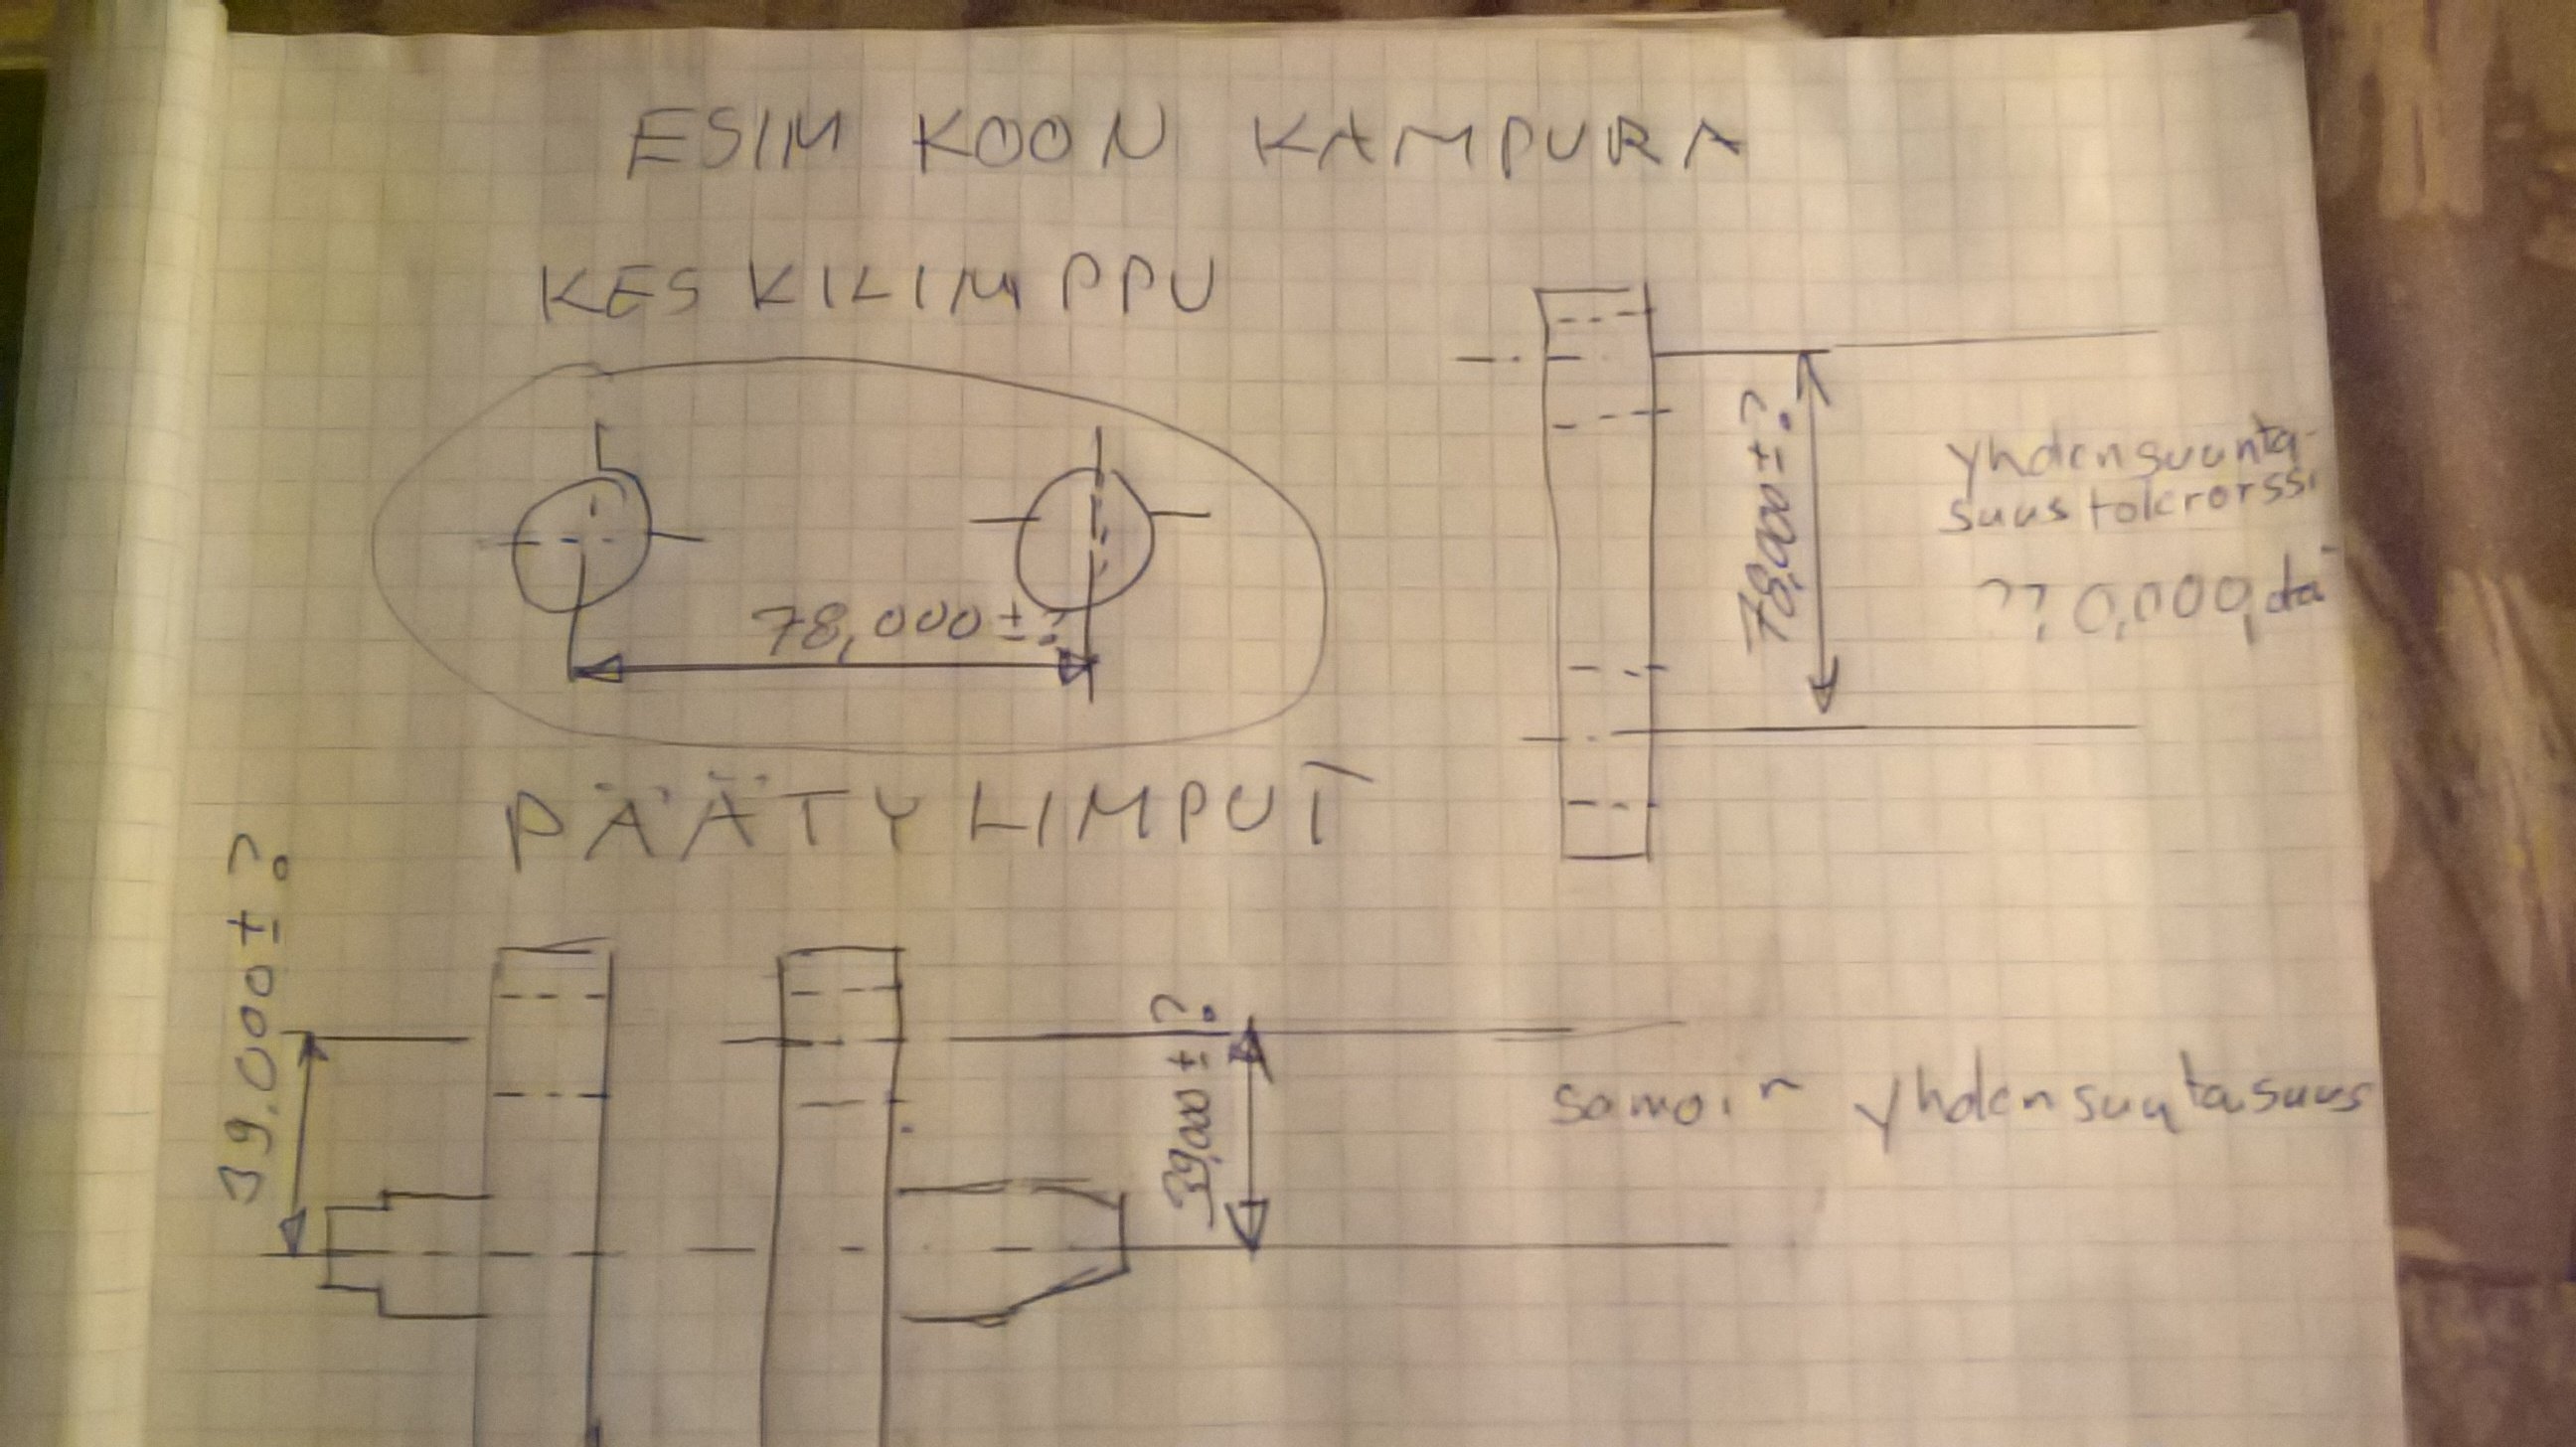 ESIM KOON KAMPURA
KESKILIMPPU
78,000 ± ?
78,000 ± ?
yhdensuunta-
suus tolerorssi
?? 0,000,dä
PÄÄTYLIMPUT
39,000 ± ?
39,000 ± ?
samoin yhdensuutasuus